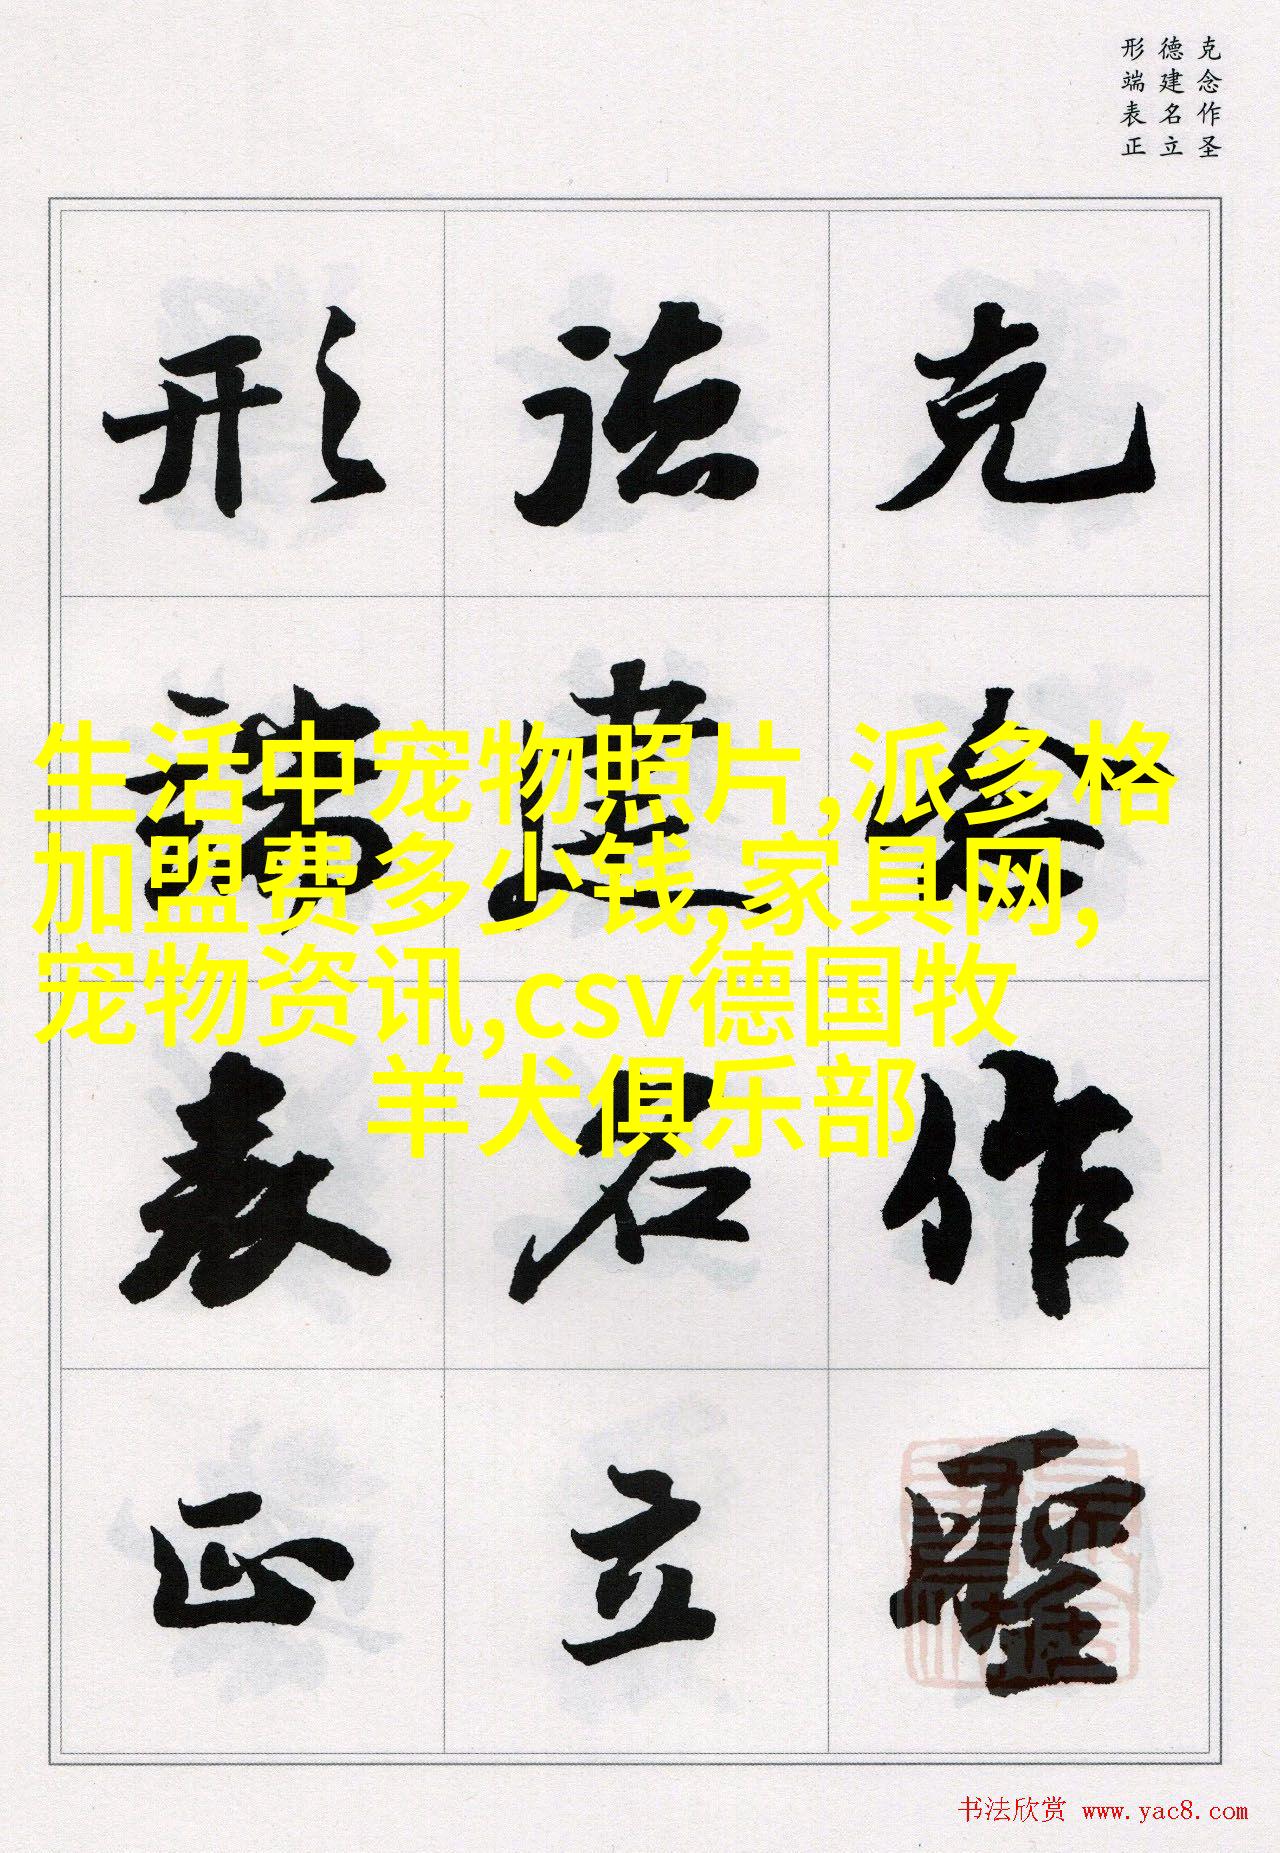 克念作圣
德建名立
形端表正
克念作聖
德建名立
形端表正
生活中宠物照片,派多格
加盟费多少钱,家具网,
宠物资讯,csv德国牧
羊犬俱乐部
书法欣赏 www.yac8.com